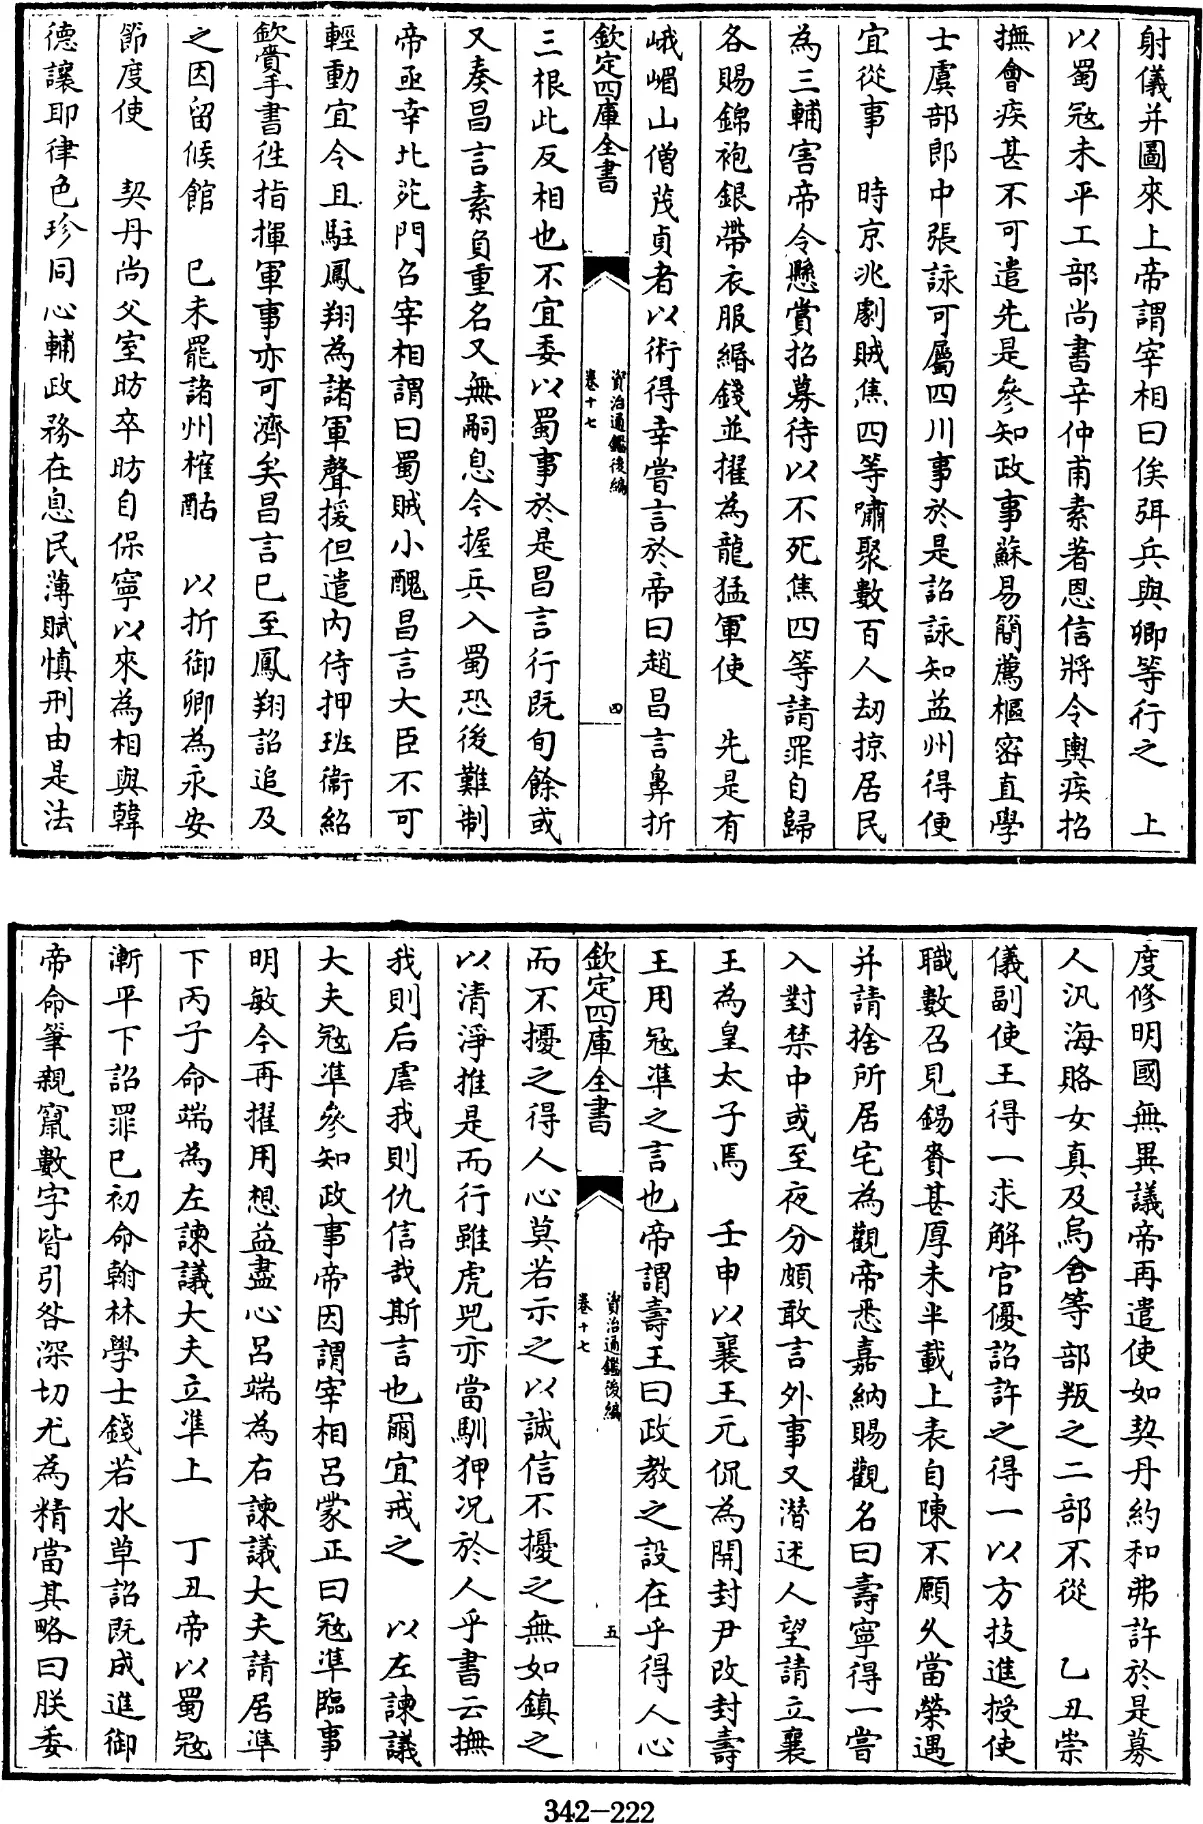 射儀并圖來上帝謂宰相曰俟弭兵與卿等行之　上
以蜀冦未平工部尚書辛仲甫素著恩信將令輿疾招
撫會疾甚不可遣先是參知政事蘇易簡薦樞密直學
士虞部郎中張詠可屬四川事於是詔詠知益州得便
宜從事　時京兆劇賊焦四等嘯聚數百人刼掠居民
為三輔害帝令懸賞招募待以不死焦四等請罪自歸
各賜錦袍銀帶衣服緡錢並擢為龍猛軍使　先是有
峨嵋山僧茂貞者以術得幸嘗言於帝曰趙昌言鼻折
欽定四庫全書
資治通鑑後編
卷十七
四
三根此反相也不宜委以蜀事於是昌言行既旬餘或
又奏昌言素負重名又無嗣息今握兵入蜀恐後難制
帝亟幸北苑門召宰相謂曰蜀賊小醜昌言大臣不可
輕動宜令且駐鳳翔為諸軍聲援但遣内侍押班衞紹
欽賫手書徃指揮軍事亦可濟矣昌言已至鳳翔詔追及
之因留候館　已未罷諸州榷酤　以折御卿為永安
節度使　契丹尚父室昉卒昉自保寧以來為相與韓
德讓耶律色珍同心輔政務在息民薄賦慎刑由是法
度修明國無異議帝再遣使如契丹約和弗許於是募
人汎海賂女真及烏舍等部叛之二部不從　乙丑崇
儀副使王得一求解官優詔許之得一以方技進授使
職數召見錫賚甚厚未半載上表自陳不願久當榮遇
并請捨所居宅為觀帝悉嘉納賜觀名曰壽寧得一嘗
入對禁中或至夜分頗敢言外事又潛述人望請立襄
王為皇太子焉　壬申以襄王元侃為開封尹改封壽
王用冦準之言也帝謂壽王曰政教之設在乎得人心
欽定四庫全書
資治通鑑後編
卷十七
五
而不擾之得人心莫若示之以誠信不擾之無如鎮之
以清淨推是而行雖虎兕亦當馴狎况於人乎書云撫
我則后虐我則仇信哉斯言也爾宜戒之　以左諫議
大夫冦準參知政事帝因謂宰相呂蒙正曰冦準臨事
明敏今再擢用想益盡心呂端為右諫議大夫請居準
下丙子命端為左諫議大夫立準上　丁丑帝以蜀冦
漸平下詔罪已初命翰林學士錢若水草詔既成進御
帝命筆親竄數字皆引咎深切尤為精當其略曰朕委
342-222